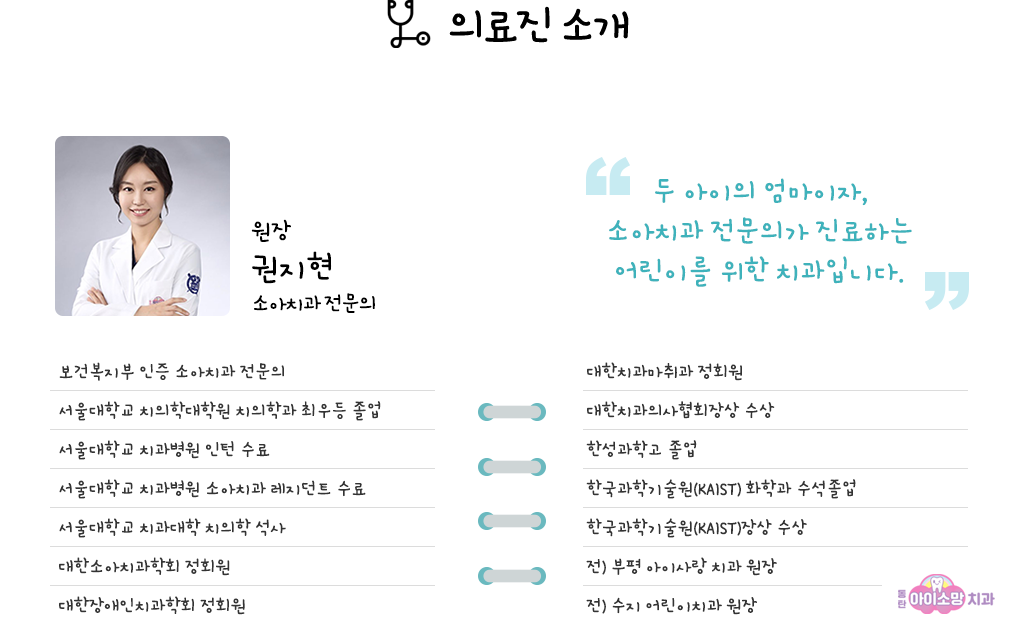 의료진 소개
원장
권지현
소아치과 전문의
두 아이의 엄마이자,
소아치과 전문의가 진료하는
어린이를 위한 치과입니다.
보건복지부 인증 소아치과 전문의
서울대학교 치의학대학원 치의학과 최우등 졸업
서울대학교 치과병원 인턴 수료
서울대학교 치과병원 소아치과 레지던트 수료
서울대학교 치과대학 치의학 석사
대한소아치과학회 정회원
대한장애인치과학회 정회원
대한치과마취과 정회원
대한치과의사협회장상 수상
한성과학고 졸업
한국과학기술원(KAIST) 화학과 수석졸업
한국과학기술원(KAIST)장상 수상
전) 부평 아이사랑 치과 원장
전) 수지 어린이치과 원장
동탄 아이소망 치과